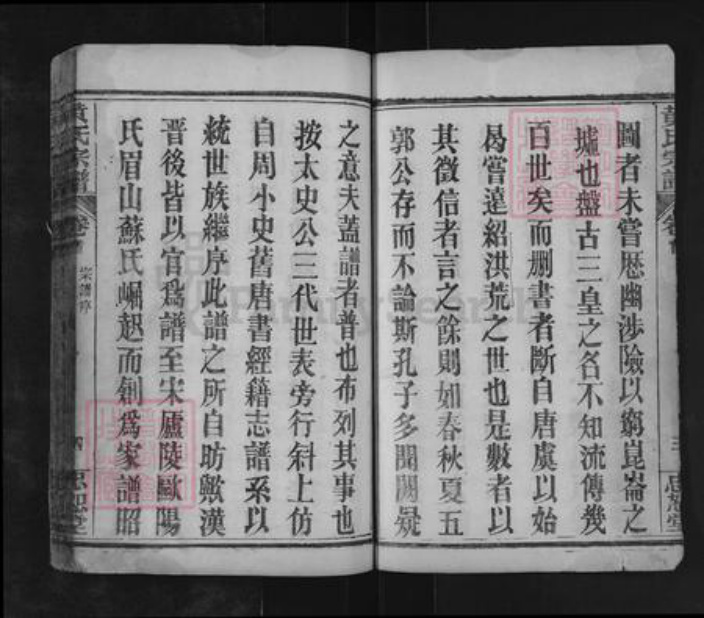 黃氏宗譜
卷首
三
思恕堂
圖者未嘗歷幽涉險以窮崑崙之
墟也盤古三皇之名不知流傳幾
百世矣而刪書者斷自唐虞以始
曷嘗遠紹洪荒之世也是數者以
其徵信者言之餘則如春秋夏五
郭公存而不論斯孔子多聞闕疑
之意夫蓋譜者普也布列其事也
按太史公三代世表旁行斜上仿
自周小史舊唐書經籍志譜系以
統世族繼序此譜之所自昉歟漢
晉後皆以官為譜至宋廬陵歐陽
氏眉山蘇氏崛起而創為家譜昭
黃氏宗譜
卷首
宗譜序
四
思恕堂
FamilySearch